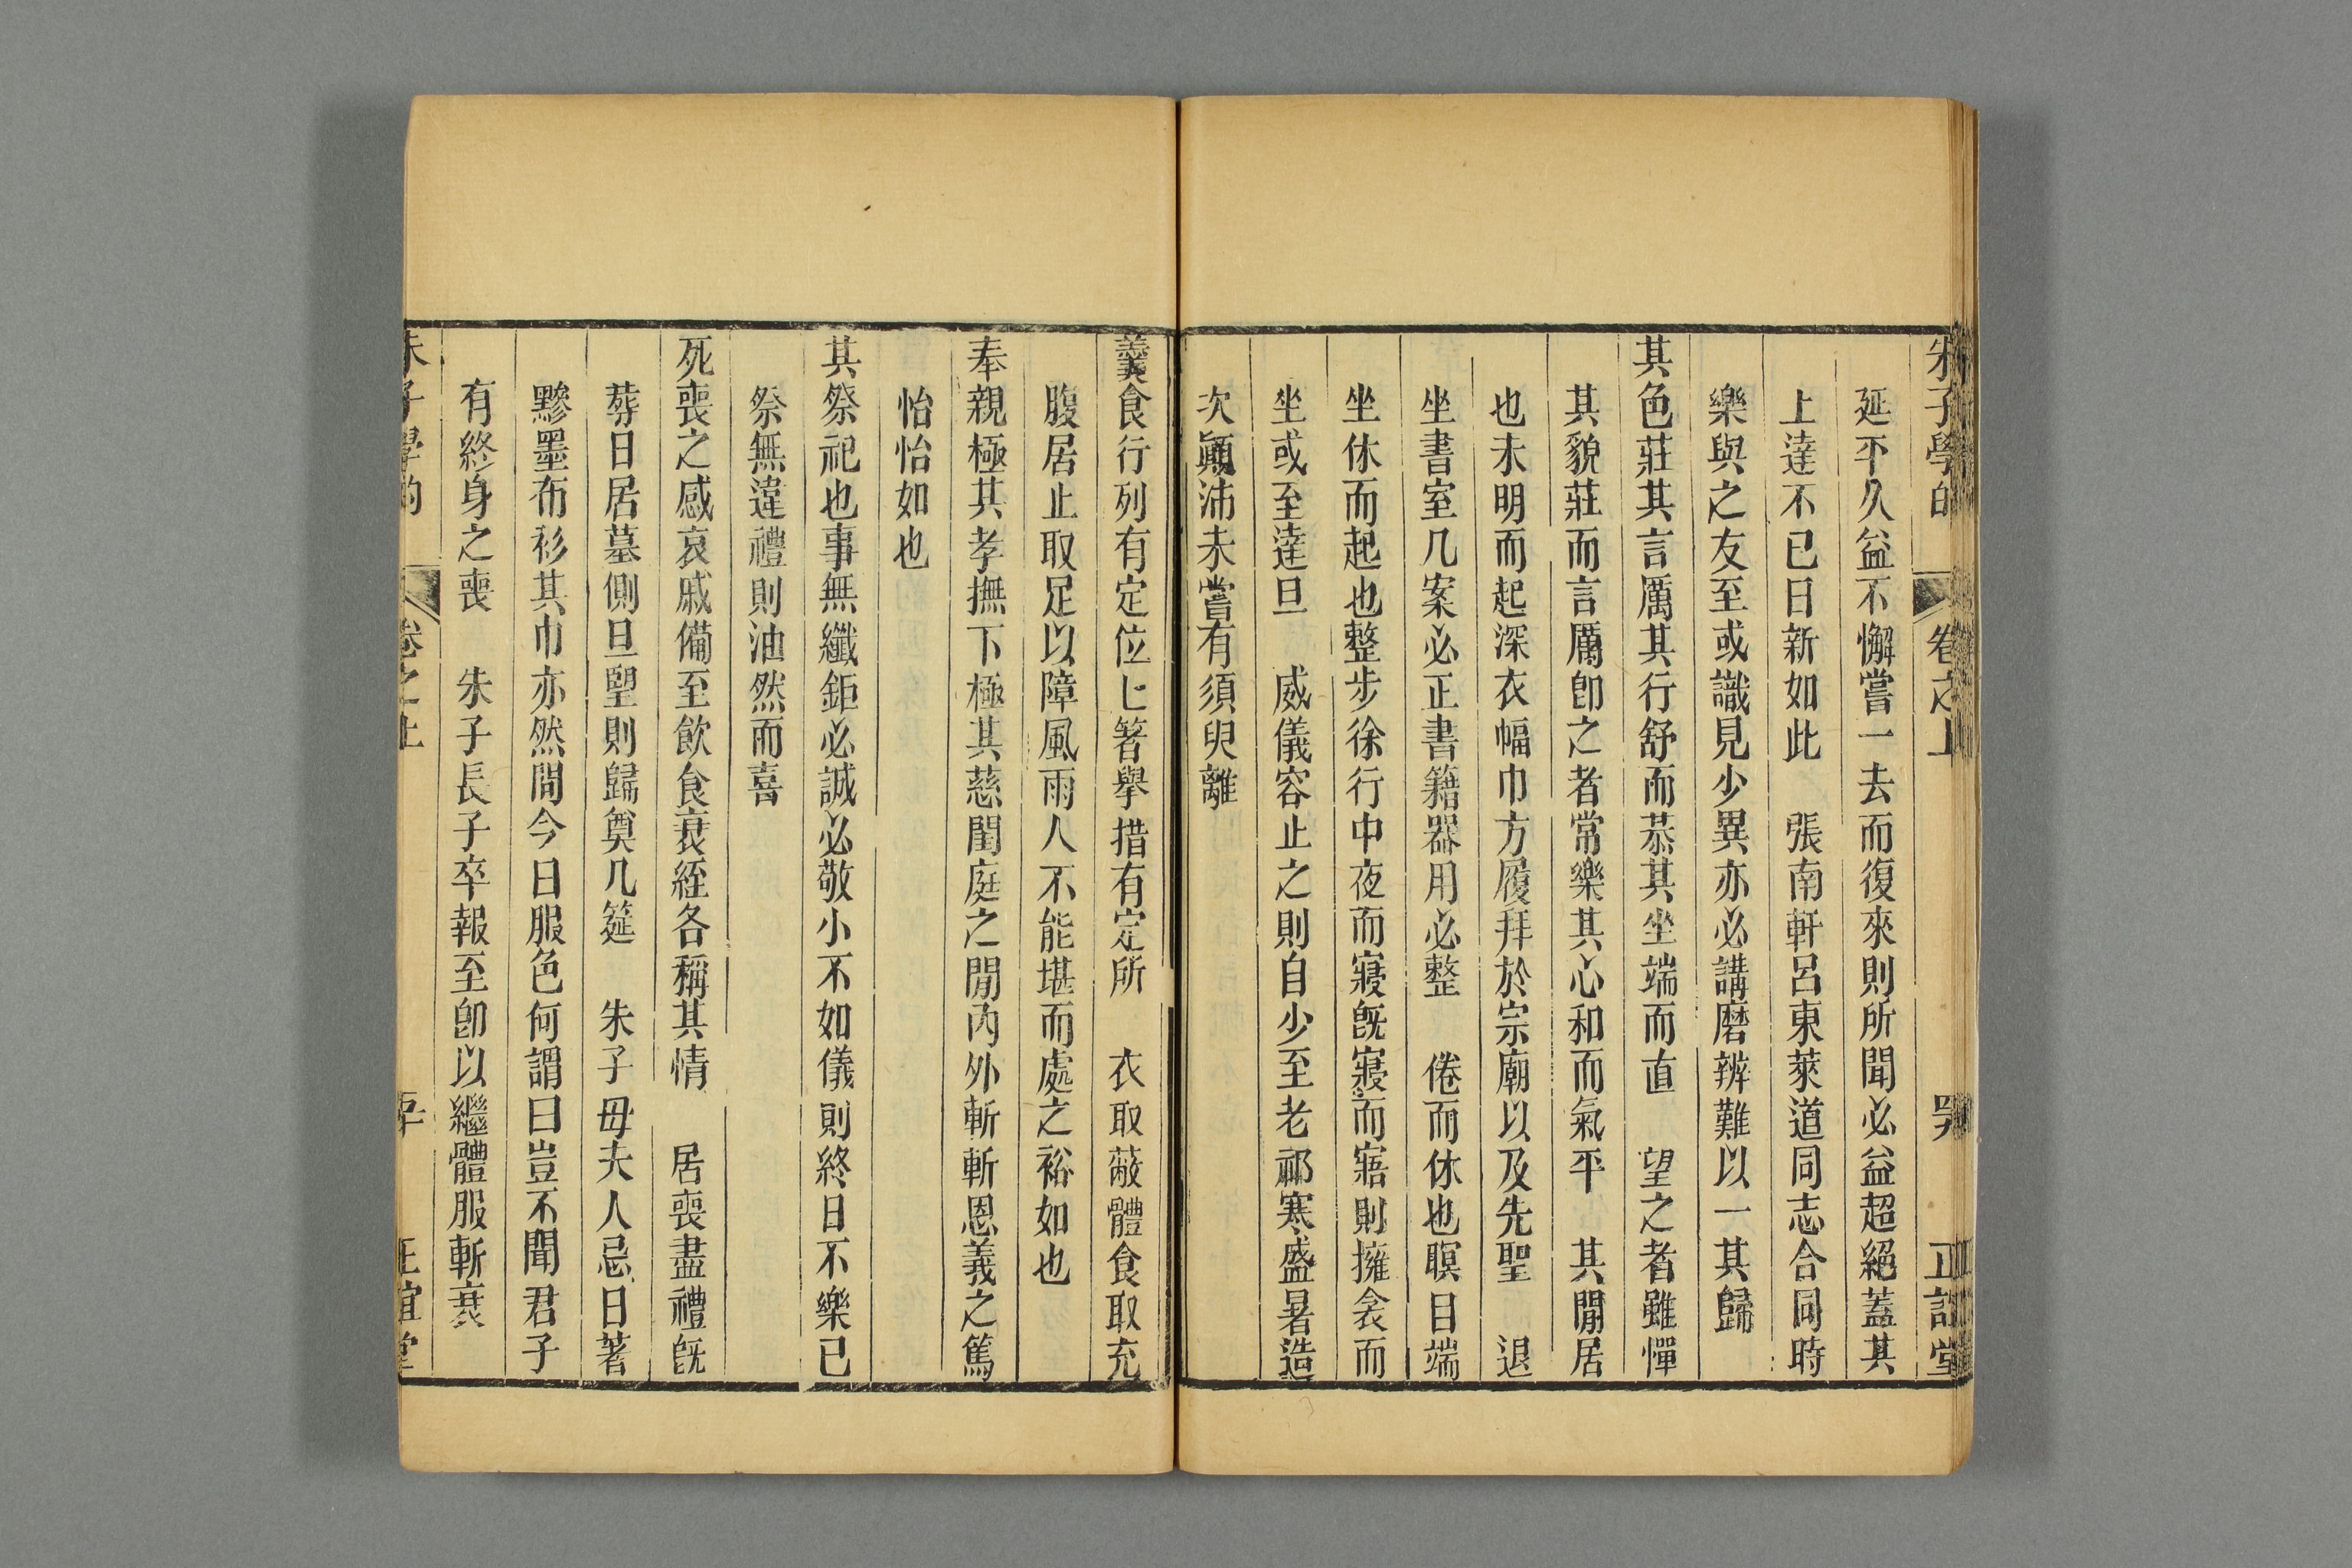 朱子學的 卷之上 罕 正誼堂
延平不久益不懈嘗一去而復來則所聞必益超絕蓋其
上達不已日新如此 張南軒呂東萊道同志合同時
樂與之友至或識見少異亦必講磨辨難以一其歸
其色莊其言厲其行舒而恭其坐端而直 望之者雖憚
其貌莊而言厲卽之者常樂其心和而氣平 其閒居
也未明而起深衣幅巾方履拜於宗廟以及先聖 退
坐書室几案必正書籍器用必整 倦而休也瞑目端
坐休而起也整步徐行中夜而寢旣寢而寤則擁衾而
坐或至達旦 威儀容止之則自少至老祁寒盛暑造
次顚沛未嘗有須臾離
羹食行列有定位匕箸舉措有定所 衣取蔽體食取充
腹居止取足以障風雨人不能堪而處之裕如也
奉親極其孝撫下極其慈閨庭之閒內外斬斬恩義之篤
怡怡如也
其祭祀也事無纖鉅必誠必敬小不如儀則終日不樂已
祭無違禮則油然而喜
死喪之感哀戚備至飮食衰絰各稱其情 居喪盡禮旣
葬日居墓側旦朢則歸奠几筵 朱子母夫人忌日著
黲墨布衫其巾亦然問今日服色何謂曰豈不聞君子
有終身之喪 朱子長子卒報至卽以繼體服斬衰
朱子學的 卷之上 平 正誼堂